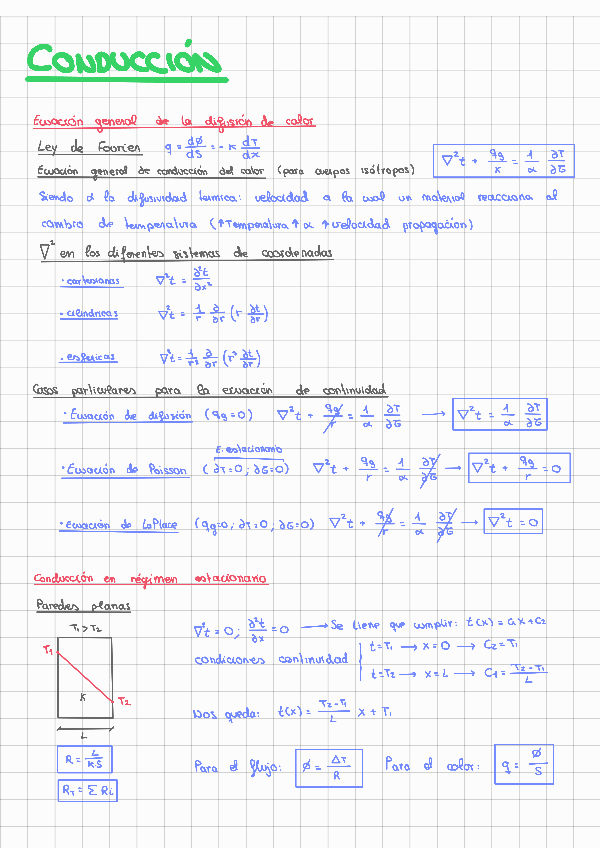 CONDUCCIÓN
Ecuación general de la difusión de calor
Ley de Fourier q = dφ/dS = -k dT/dx
Ecuación general de conducción del calor (para cuerpos isótropos) ∇²t + qg/k = 1/α ∂T/∂ζ
Siendo α la difusividad térmica: velocidad a la cual un material reacciona al
cambio de temperatura (↑Temperatura ↑α ↑velocidad propagación)
∇² en los diferentes sistemas de coordenadas
· cartesianas ∇²t = ∂²t/∂x²
· cilíndricas ∇²t = 1/r ∂/∂r (r ∂t/∂r)
· esféricas ∇²t = 1/r² ∂/∂r (r² ∂t/∂r)
Casos particulares para la ecuación de continuidad
· Ecuación de difusión (qg=0) ∇²t + qg/r = 1/α ∂T/∂ζ → ∇²t = 1/α ∂T/∂ζ
E. estacionario
· Ecuación de Poisson (∂T=0; ∂ζ=0) ∇²t + qg/r = 1/α ∂T/∂ζ → ∇²t + qg/r = 0
· Ecuación de LaPlace (qg=0; ∂T=0; ∂ζ=0) ∇²t + qg/r = 1/α ∂T/∂ζ → ∇²t = 0
Conducción en régimen estacionario
Paredes planas
T1 > T2
T1
T2
K
L
R = L/K·S
RT = Σ Ri
∇²t = 0; ∂²t/∂x = 0 → Se tiene que cumplir: t(x) = C1x + C2
condiciones continuidad
t=T1 → x=0 → C2=T1
t=T2 → x=L → C1 = T2-T1/L
Nos queda: t(x) = T2-T1/L x + T1
Para el flujo: φ = ΔT/R Para el calor: q = φ/S